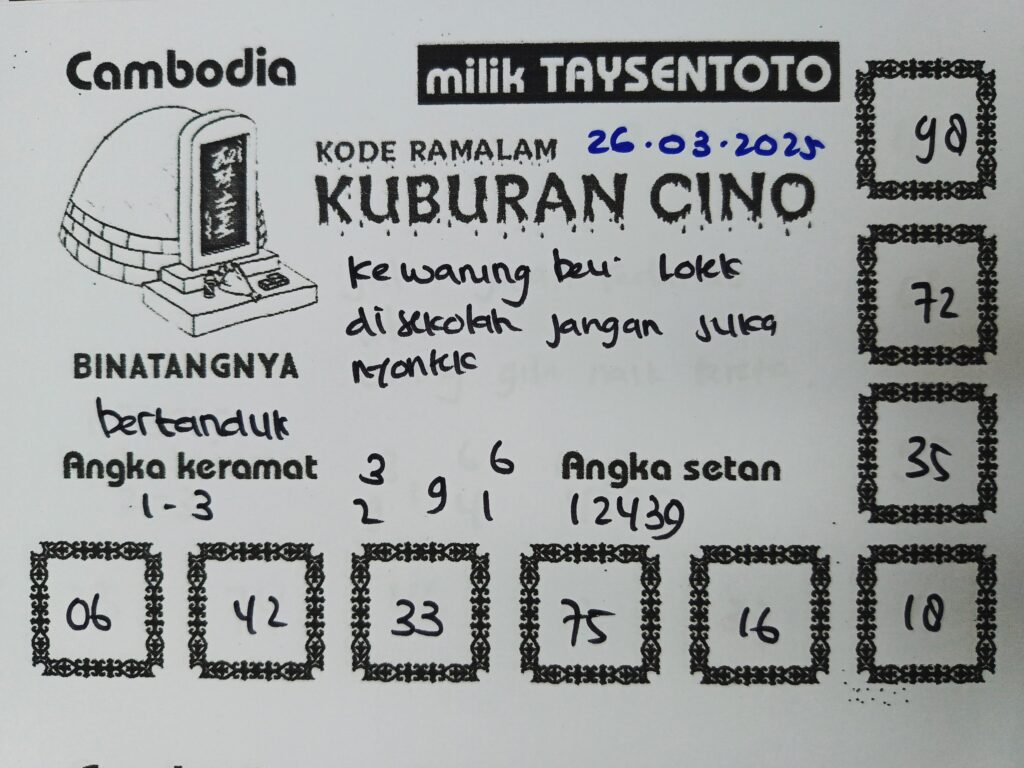 Cambodia
milik TAYSENTOTO
KODE RAMALAM 26.03.2025
KUBURAN CINO
ke warung beli Lolek
di sekolah jangan suka
nyontek
BINATANGNYA
bertanduk
Angka keramat
1-3
3 6
9
2 1
Angka setan
12439
98
72
35
06 42 33 75 16 18